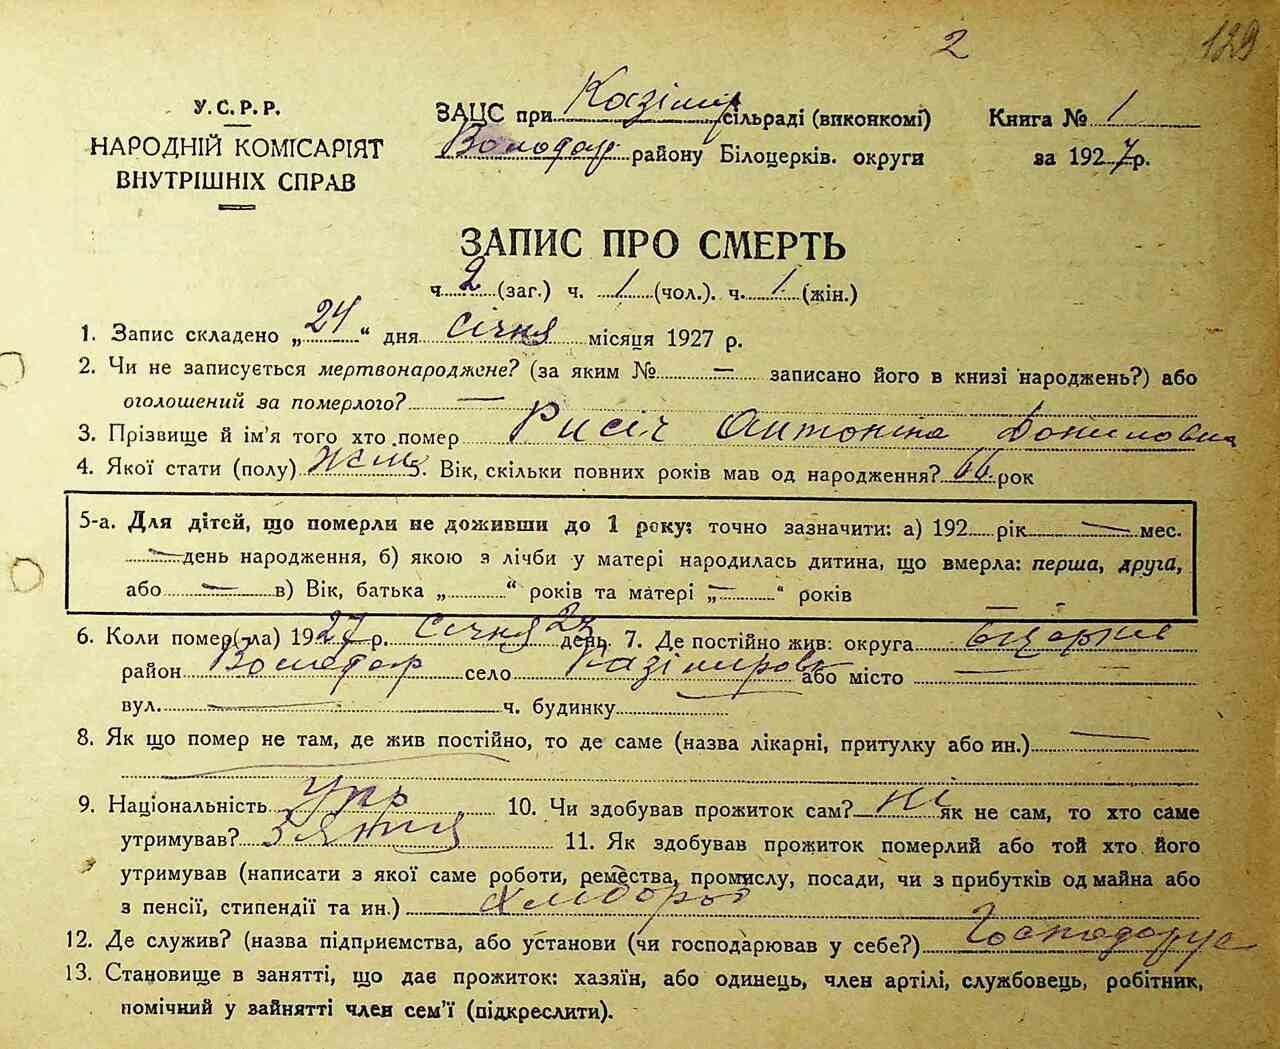 2 129
У.С.Р.Р.
НАРОДНІЙ КОМІСАРІЯТ
ВНУТРІШНІХ СПРАВ
ЗАЦС при Казімир сільраді (виконкомі)
Володар районy Білоцерків. округи
Книга № 1
за 1927 р.
ЗАПИС ПРО СМЕРТЬ
ч. 2 (заг.) ч. 1 (чол.). ч. 1 (жін.)
1. Запис складено „24“ дня січня місяця 1927 р.
2. Чи не записується мертвонароджене? (за яким № — записано його в книзі народжень?) або
оголошений за померлого? —
3. Прізвище й ім'я того хто помер Рисіч Антоніна Даниловна
4. Якої стати (полу) жін 5. Вік, скільки повних років мав од народження? 66 рок
5-а. Для дітей, що померли не доживши до 1 року: точно зазначити: а) 192 рік — мес.
— день народження, б) якою з лічби у матері народилась дитина, що вмерла: перша, друга,
або — в) Вік, батька „ “ років та матері „—“ років
6. Коли помер(ла) 1927 р. Січня 23 день. 7. Де постійно жив: округа Бцеркв
район Володар село Казіміровк або місто —
вул. — ч. будинку
8. Як що помер не там, де жив постійно, то де саме (назва лікарні, притулку або ин.) —
9. Національність Укр 10. Чи здобував прожиток сам? ні як не сам, то хто саме
утримував? Зятя 11. Як здобував прожиток померлий або той хто його
утримував (написати з якої саме роботи, ремества, промислу, посади, чи з прибутків од майна або
з пенсії, стипендії та ин.) Хлібороб
12. Де служив? (назва підприємства, або установи (чи господарював у себе?) Господарує
13. Становище в занятті, що дає прожиток: хазяїн, або одинець, член артілі, службовець, робітник,
помічний у зайнятті член сем'ї (підкреслити).